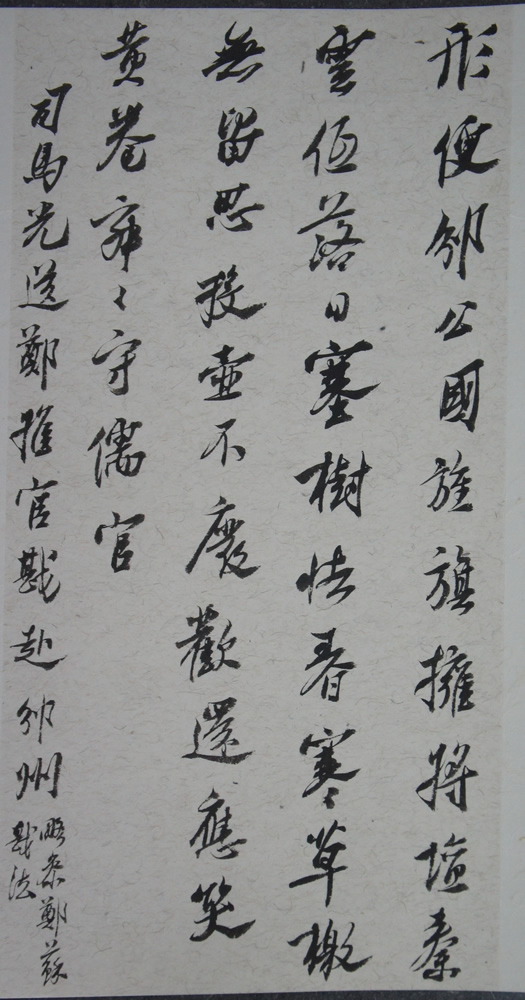 形便邠公國旌旗擁將壇秦
雲低落日塞樹怯春寒〻草檄
無留思投壺不廢歡還應笑
黄卷寂〻守儒官
司馬光送鄭推官戡赴邠州
略參鄭蘇
戡法